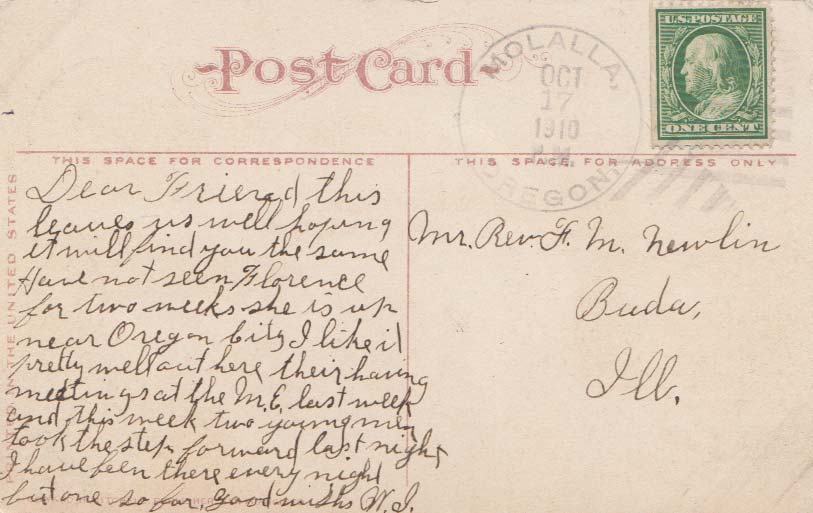 Post Card
MOLALLA,
OCT
17
1910
P.M.
OREGON.
U.S. POSTAGE
ONE CENT
THIS SPACE FOR CORRESPONDENCE
THIS SPACE FOR ADDRESS ONLY
IN THE UNITED STATES
Dear Friend this
leaves us well hoping
it will find you the same
Have not seen Florence
for two weeks she is up
near Oregon City I like it
pretty well out here their having
meetings at the M.E. last week
and this week two young men
took the step forward last night
I have been there every night
but one so far, good wishs W.I.
Mr. Rev. F. M. Newlin
Buda,
Ill.